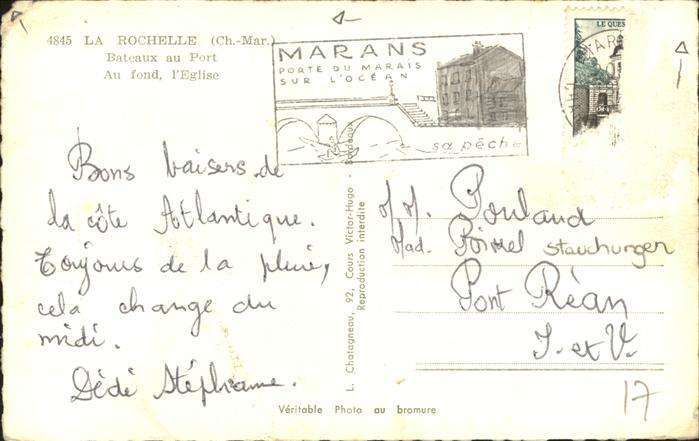 4845 LA ROCHELLE (Ch-Mar.)
Bateaux au Port
Au fond, l'Eglise
MARANS
PORTE DU MARAIS
SUR L'OCÉAN
sa pêche
LE QUES
MAR
Bons baisers de
la côte Atlantique.
Toujours de la pluie,
cela change du
midi.
Dédé Stéphane.
L. Chatagneau, 92, Cours Victor-Hugo - Bordeaux
Reproduction interdite
M.M. Poulard
Mad. Poirrel stauchurger
Pont Réan
I. et V.
17
Véritable Photo au bromure